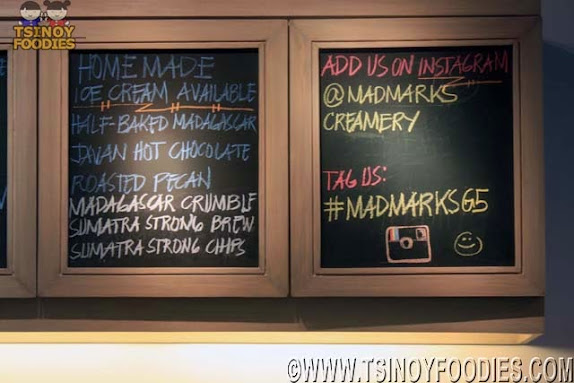 TSINOY
FOODIES
HOME MADE
ICE CREAM AVAILABLE
HALF-BAKED MADAGASCAR
JAVAN HOT CHOCOLATE
ROASTED PECAN
MADAGASCAR CRUMBLE
SUMATRA STRONG BREW
SUMATRA STRONG CHIPS
ADD US ON INSTAGRAM
@MADMARKS
CREAMERY
TAG US:
#MADMARKSG5
©WWW.TSINOYFOODIES.COM